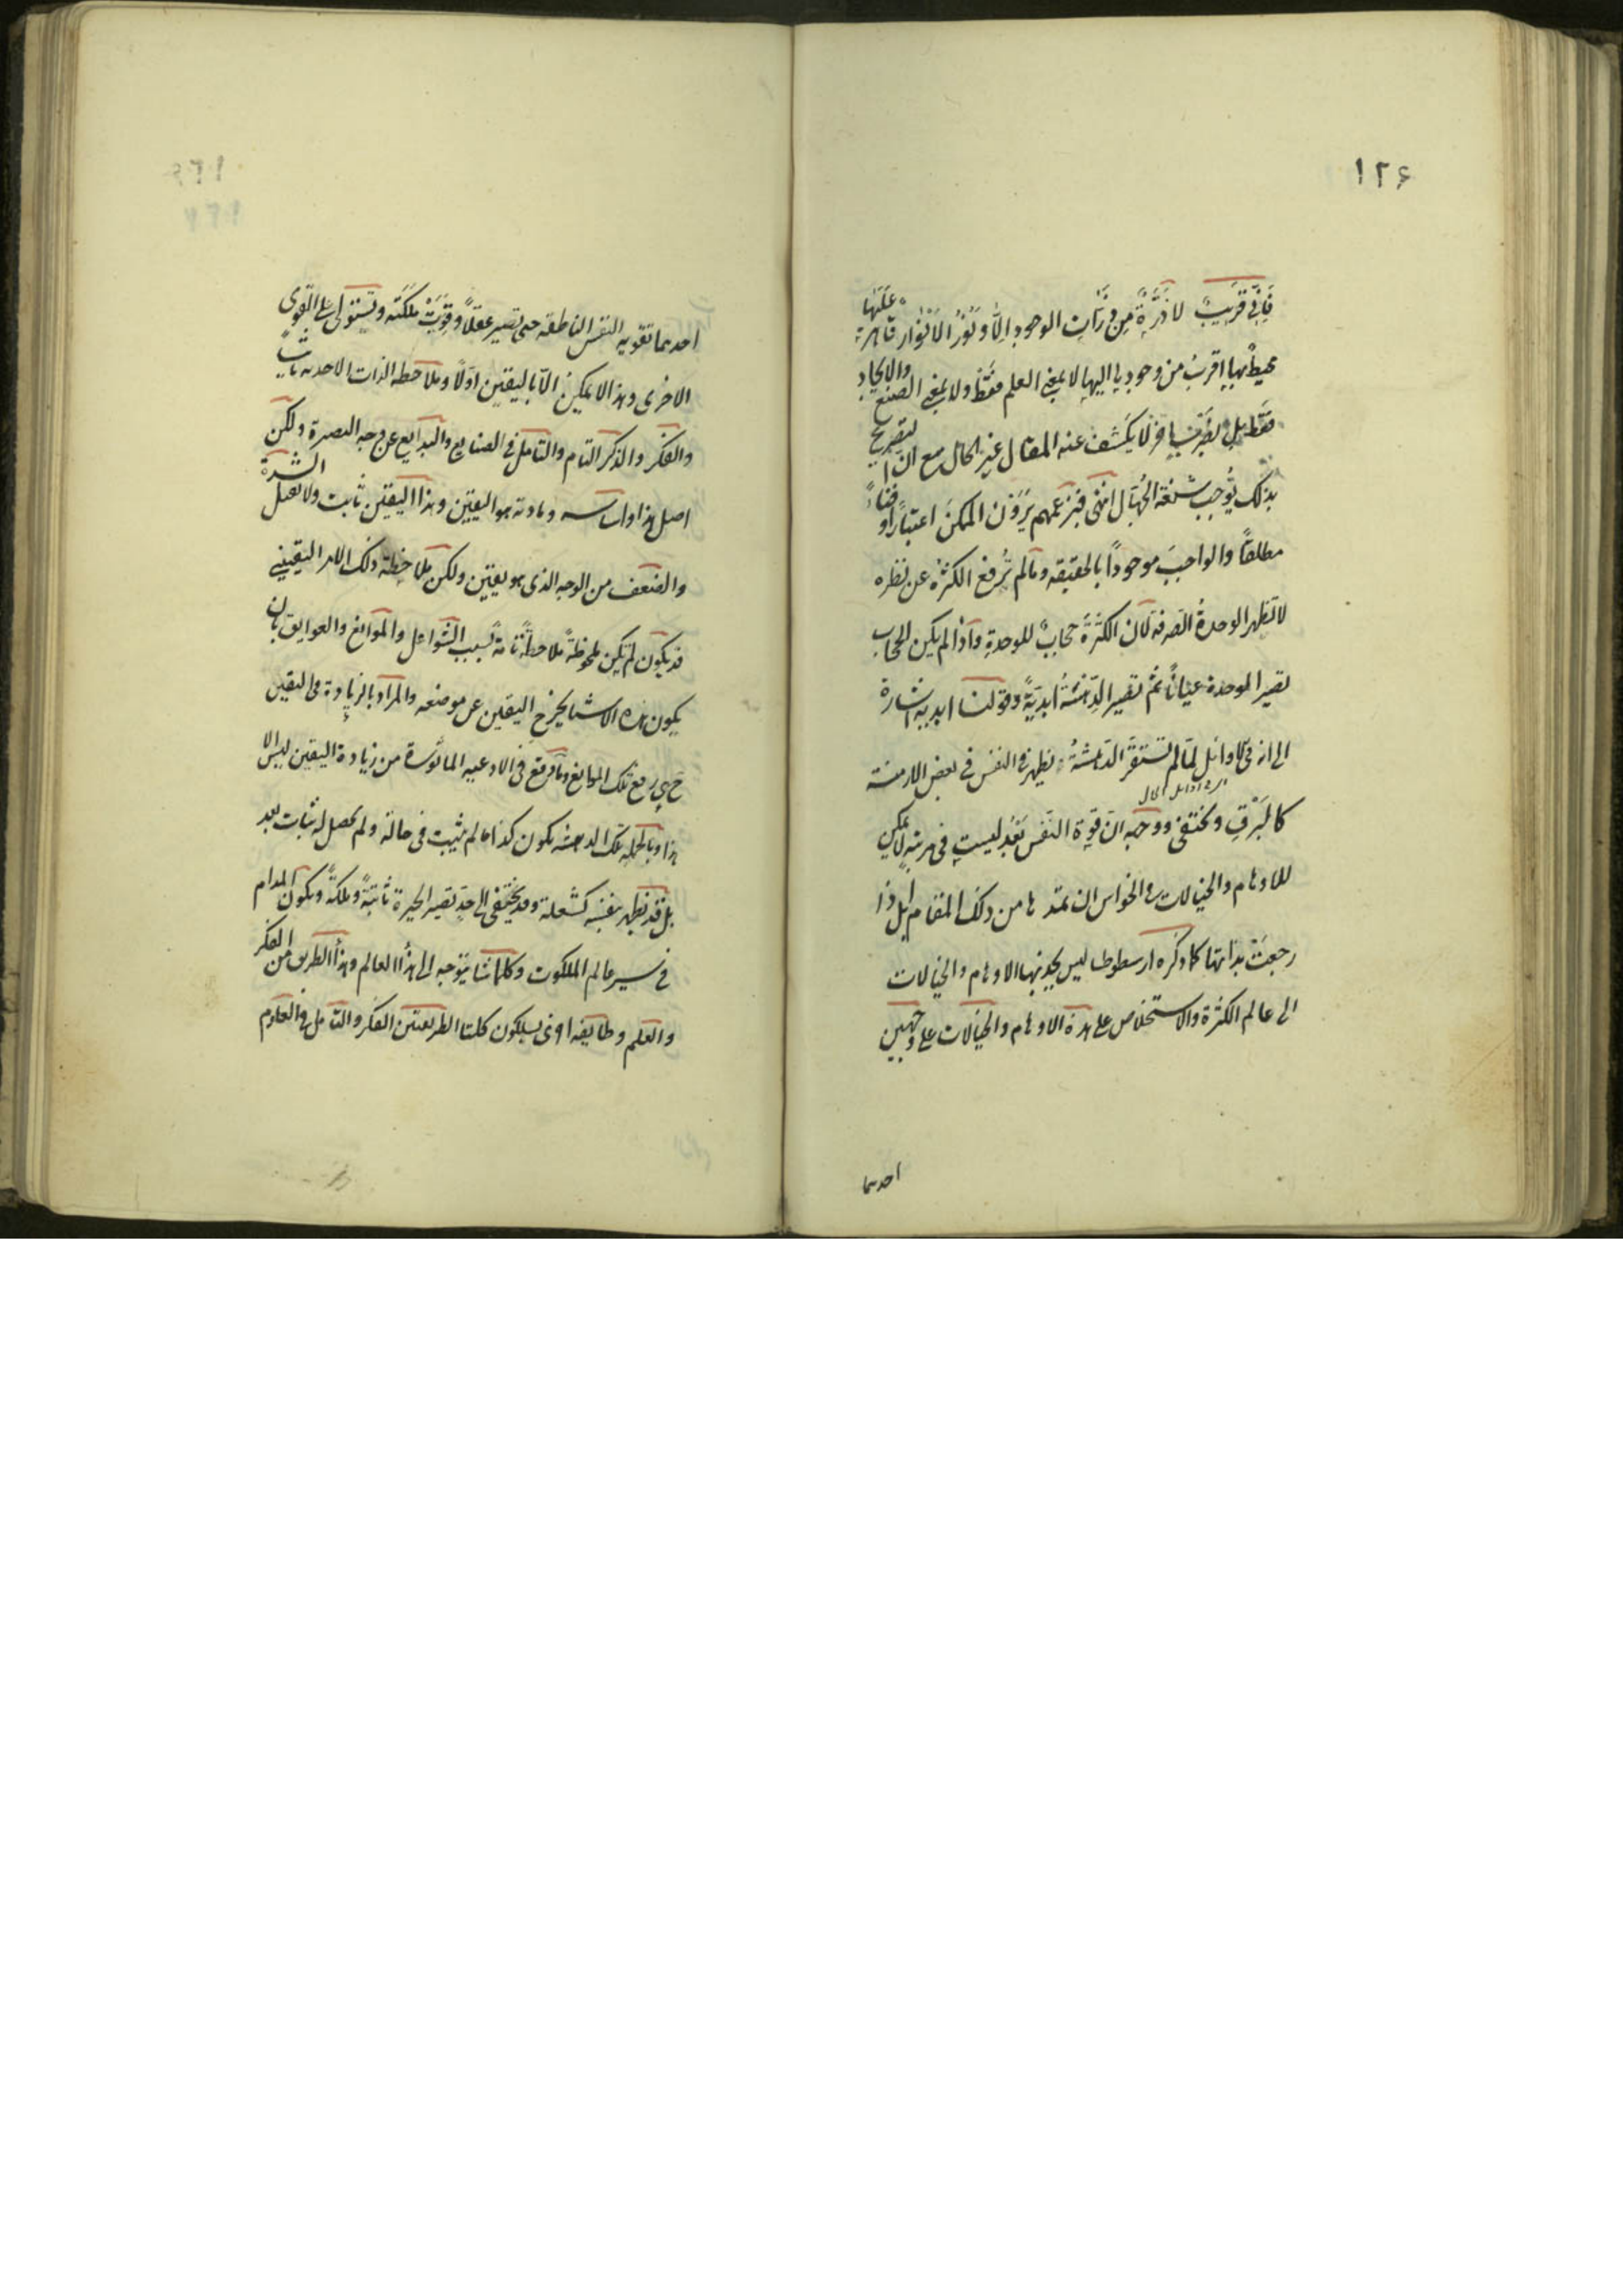 ١٢۶
فَاِنِّى قَرِيبٌ لا ذَرَّةٌ مِن ذَرَّاتِ الوجود اِلّا و نُورُ الاَنْوَار قاهرة عليها
محيط بها اقرب من وجودها اليها لا بمعنى العلم فقط ولا بمعنى الصنع والايجاد
فقط بل بضرب اخر لا يكشف عنه المقال غير الحال مع ان التصريح
بذلك يوجب شنعة الجهال انتهى فبزعمهم يرون الممكن اعتبارا وفناءً
مطلقاً والواجبَ موجوداً بالحقيقه ومالم تُرفع الكثرة عن نظره
لا تظهر الوحدةُ الصرفه لان الكثرةَ حجابٌ للوحدةِ واذا لم يكن الحجاب
تصير الوحدة عياناً ثم تصير الدهشةُ ابديّةً وقولنا ابديه اشارة
الى ان فى الاوائل لمّا لم تستقرّ الدهشةُ تظهر فى النفس فى بعض الازمنة
كالبَرْقِ وتختفى ووجهه ان قوة النفس بَعْدُ ليست فى مرتبةٍ لا يمكن
للاوهام والخيالات والحواس ان تمدها من ذلك المقام بل اذا
رجعت بذاتها كما ذكره ارسطوطاليس يجذبها الاوهام والخيالات
الى عالم الكثرة والاستخلاص على هذه الاوهام والخيالات على وجهين
احدهما
احدهما تقويه النفس الناطقه حتى تصير عقلاً وقويت ملكته وتستولى على القوى
الاخرى وهذا لا يمكن الّا باليقين اوّلاً وملاحظه الذات الاحديه ثانياً
والفكر والذكر التام والتامل فى الصنايع والبدايع عن وجه البصيرة ولكن
اصل هذا واساسه ومادته هو اليقين وهذا اليقين ثابت ولا يقبل الشدة
والضعف من الوجه الذى هو يقين ولكن ملاحظة ذلك الامر اليقينى
قد يكون لم يكن ملحوظةً ملاحظةً تامةً بسبب الشواغل والموانع والعوايق بان
يكون هذه الاشيا يخرج اليقين عن موضعه والمراد بالزيادة فى اليقين
ح هى رفع تلك الموانع وما وقع فى الادعيه الماثورة من زيادة اليقين ليس الا
هذا وبالجمله تلك الدهشه يكون كذا مالم يثبت فى حاله ولم يحصل له ثبات بعد
بل قد تظهر بنفسه كشعلة وقد يختفى الى حدٍ تصير الحيرة ثابتةً وملكةً ويكون المدام
فى سير عالم الملكوت وكلما شا يتوجه الى هذا العالم وهذا الطريق من الفكر
والعلم وطايفه اخرى يسلكون كلتا الطريقتين الفكر والتامل فى العلوم